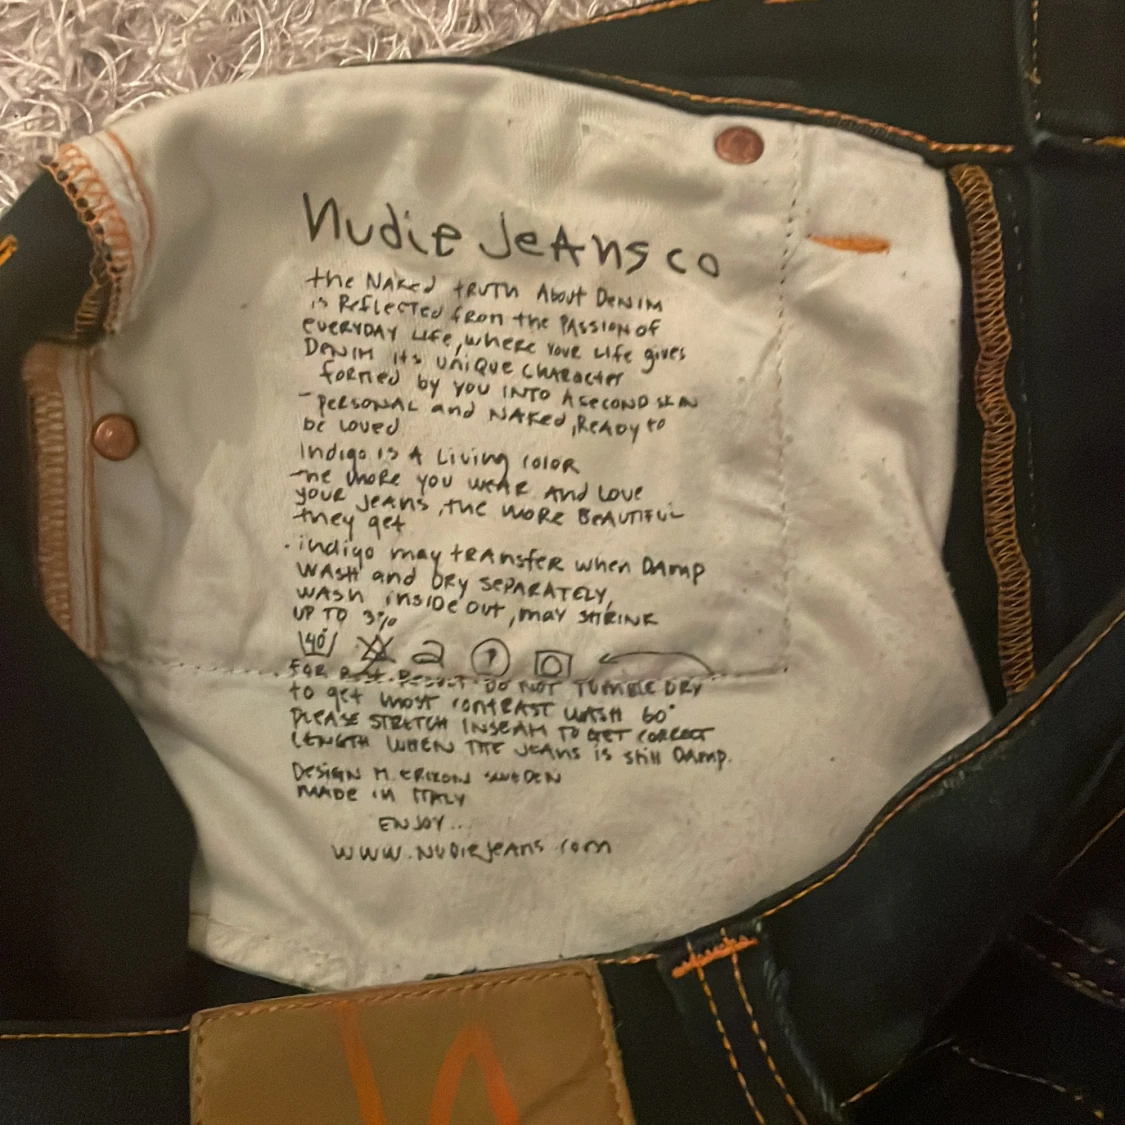 Nudie Jeans co
the Naked truth About Denim
is Reflected from the Passion of
everyday life, where your life gives
Denim its unique character
formed by you into a second skin
- personal and naked, ready to
be loved
Indigo is a living color
the more you wear and love
your jeans, the more beautiful
they get
. indigo may transfer when damp
wash and dry separately,
wash inside out, may shrink
up to 3%
40°
For Best Result do not tumble dry
to get most contrast wash 60°
please stretch inseam to get correct
length when the jeans is still damp.
Design M. Erixon Sweden
made in Italy
Enjoy...
www.nudiejeans.com